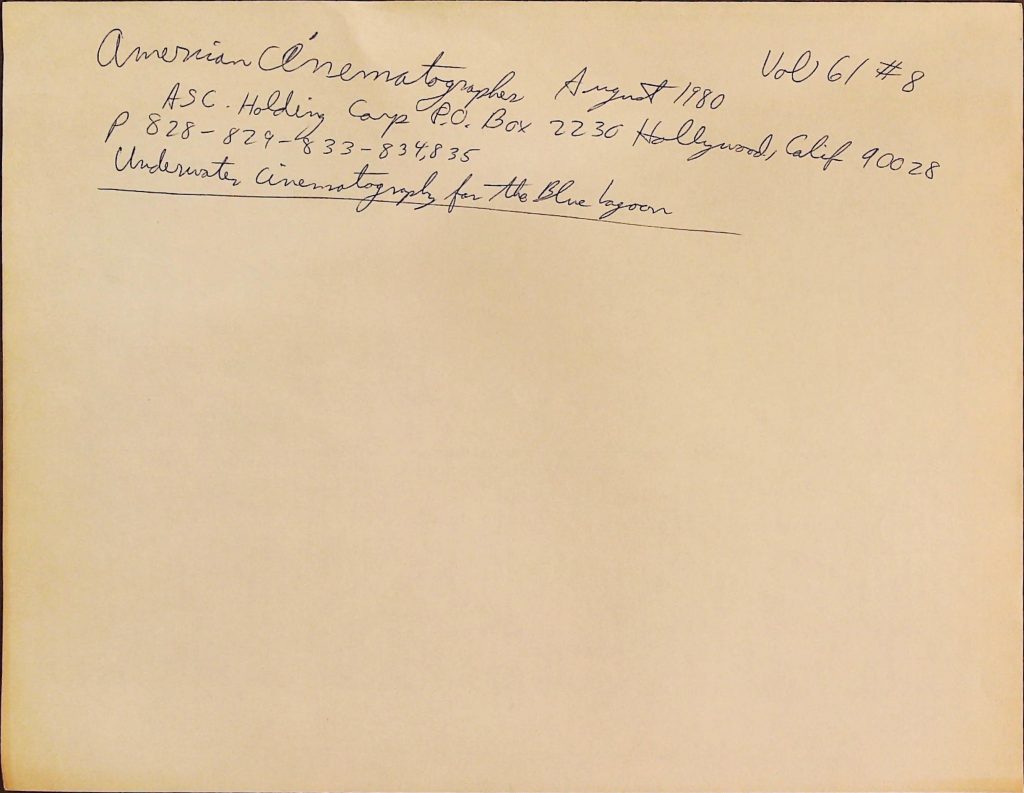 American Cinematographer August 1980 Vol 61 #8
ASC. Holding Corp P.O. Box 2230 Hollywood, Calif 90028
P 828-829-833-834,835
Underwater Cinematography for the Blue Lagoon